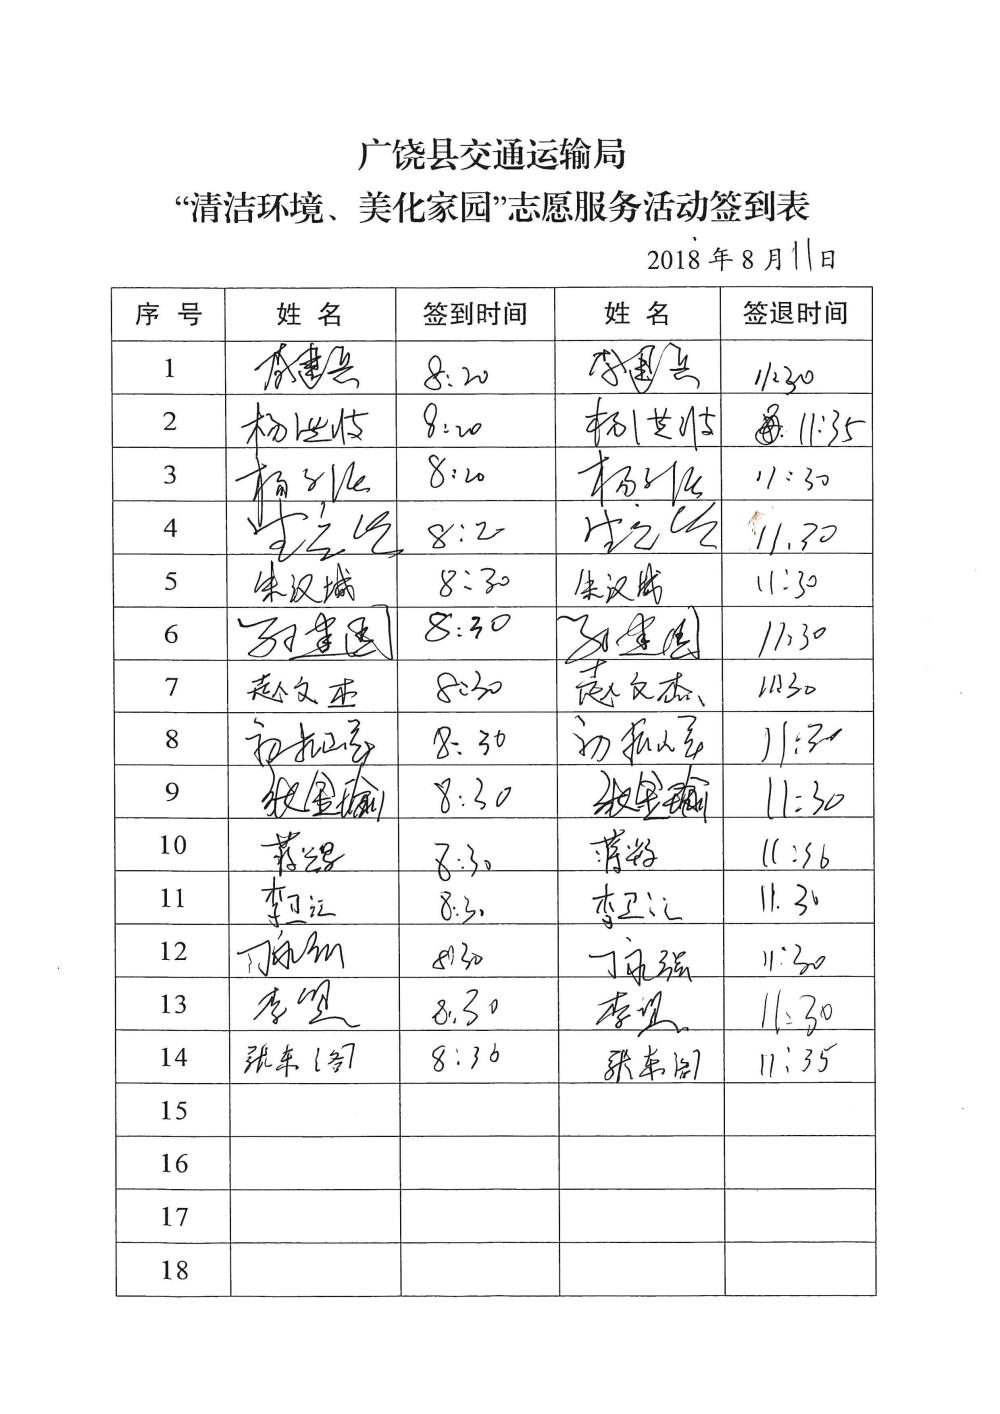 广饶县交通运输局
“清洁环境、美化家园”志愿服务活动签到表
2018年8月11日
序 号 姓 名 签到时间 姓 名 签退时间
1 李建兵 8:20 李建兵 11:30
2 杨洪波 8:20 杨洪波 11:35
3 杨 8:20 杨 11:30
4 8:2 11.30
5 朱汉城 8:30 朱汉城 11:30
6 孙建国 8:30 孙建国 11:30
7 赵文杰 8:30 赵文杰 11:30
8 初振 8:30 初振 11:30
9 张金瑜 8:30 张金瑜 11:30
10 蒋 8:30 蒋 11:36
11 李卫江 8:30 李卫江 11.30
12 丁永强 8:30 丁永强 11:30
13 李 8.30 李 11:30
14 张东阁 8:36 张东阁 11:35
15
16
17
18